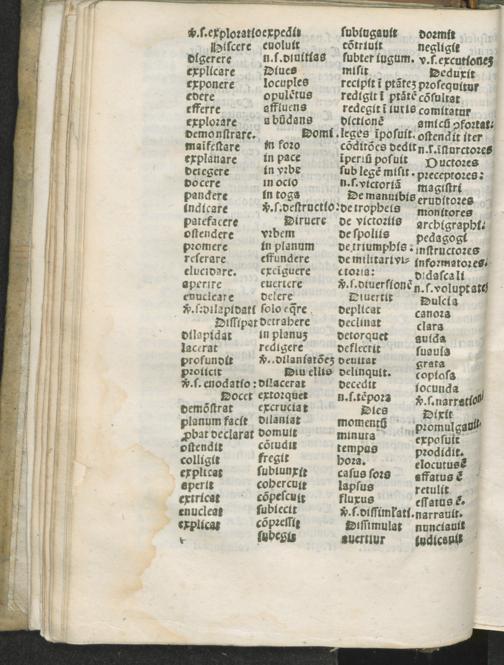 v̄.s.exploratio
Discere
digerere
explicare
exponere
edere
efferre
explorare
demonstrare.
maifestare
explanare
detegere
docere
pandere
indicare
patefacere
ostendere
promere
reserare
elucidare.
aperire
enucleare
v̄.s:dilapidati
Dissipat
dilapidat
lacerat
profundit
proiicit
v̄.s. enodatio:
Docet
demōstrat
planum facit
ꝓbat declarat
ostendit
colligit
explicat
aperit
extricat
enucleat
explicat
expedit
euoluit
n.s.diuitias
Diues
locuples
opulētus
affluens
abūdans
Domi.
in foro
in pace
in vrbe
in ocio
in toga
v̄.s.destructio:
Diruere
vrbem
in planum
effundere
exciguere
euertere
delere
solo eq̄re
detrahere
in planuz
redigere
v̄..dilaniatōez
Diu ellis
dilacerat
extorquet
excruciat
dilaniat
domuit
cōtudit
fregit
subiunxit
cohercuit
cōpescuit
subiecit
cōpressit
subegit
subiugauit
cōtriuit
subter iugum.
misit
recipit ī ptātez
redigit ī ptātē
redegit ī iuris
dictionē
leges īposuit.
cōditōes dedit
īperiū posuit
sub legē misit.
n.s.victoriā
De manubiis
de tropheis
de victoriis
de spoliis
de triumphis:
de militari vi-
ctoria:
v̄.s.diuersionē
Diuertit
deplicat
declinat
detorquet
deflectit
deuitat
delinquit.
decedit
n.s.tēpora
Dies
momentū
minuta
tempus
hora.
casus sors
lapsus
fluxus
v̄.s.dissimlati.
Dissimulat
auertitur
dormit
negligit
v.s.excutionez
Deduxit
prosequitur
cōsultat
comitatur
amicū ꝯfortat:
ostendit iter
n.s.īsturctores
Ductores
preceptores:
magistri
eruditores
monitores
archigraphi:
pedagogi
instructores
informatores.
didascali
n.s.voluptates
Dulcia
canora
clara
auida
suauia
grata
copiosa
iocunda
v̄.s.narrationē
Dixit
promulgauit.
exposuit
prodidit.
elocutusē
affatus ē
retulit
effatus ē.
narrauit.
nunciauit
iudicauit